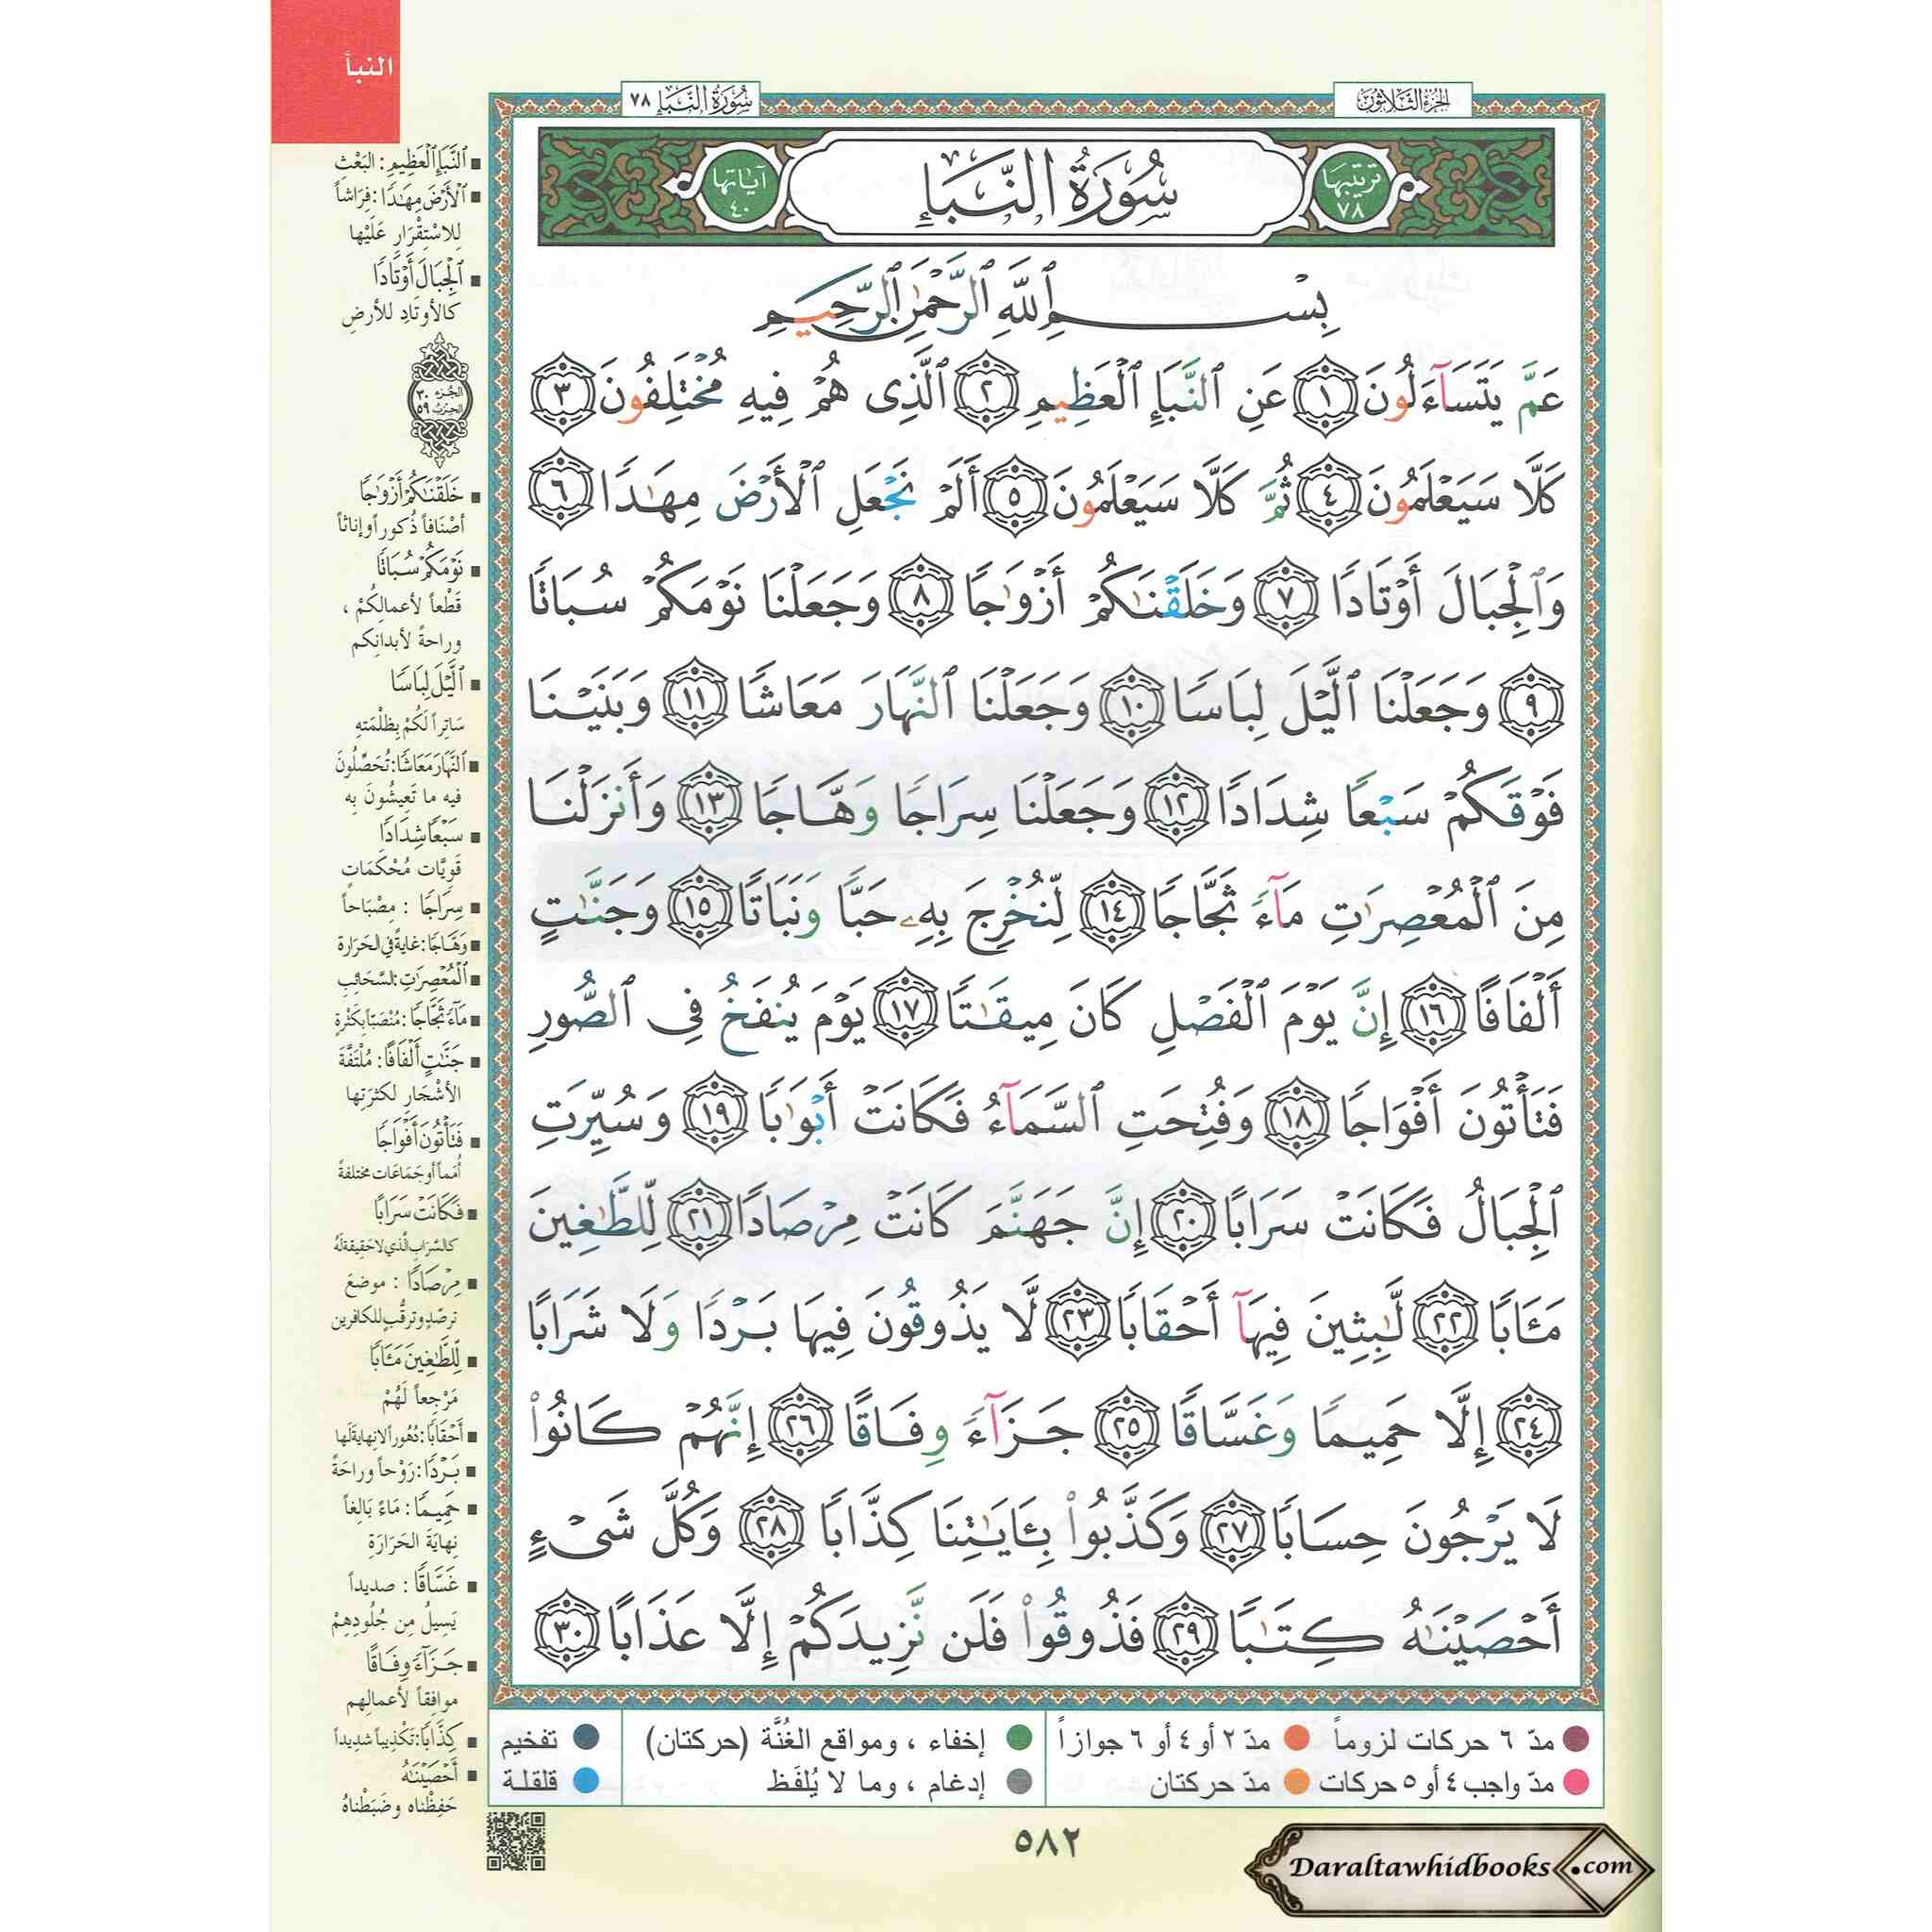 النبأ
الجزء الثلاثون
سُورَةُ النَّبَإِ ٧٨
ترتيبها ٧٨
سُورَةُ النَّبَإِ
آياتها ٤٠
بِسْمِ ٱللَّهِ ٱلرَّحْمَٰنِ ٱلرَّحِيمِ
عَمَّ يَتَسَآءَلُونَ ١ عَنِ ٱلنَّبَإِ ٱلْعَظِيمِ ٢ ٱلَّذِى هُمْ فِيهِ مُخْتَلِفُونَ ٣
كَلَّا سَيَعْلَمُونَ ٤ ثُمَّ كَلَّا سَيَعْلَمُونَ ٥ أَلَمْ نَجْعَلِ ٱلْأَرْضَ مِهَٰدًا ٦
وَٱلْجِبَالَ أَوْتَادًا ٧ وَخَلَقْنَٰكُمْ أَزْوَٰجًا ٨ وَجَعَلْنَا نَوْمَكُمْ سُبَاتًا
٩ وَجَعَلْنَا ٱلَّيْلَ لِبَاسًا ١٠ وَجَعَلْنَا ٱلنَّهَارَ مَعَاشًا ١١ وَبَنَيْنَا
فَوْقَكُمْ سَبْعًا شِدَادًا ١٢ وَجَعَلْنَا سِرَاجًا وَهَّاجًا ١٣ وَأَنزَلْنَا
مِنَ ٱلْمُعْصِرَٰتِ مَآءً ثَجَّاجًا ١٤ لِّنُخْرِجَ بِهِۦ حَبًّا وَنَبَاتًا ١٥ وَجَنَّٰتٍ
أَلْفَافًا ١٦ إِنَّ يَوْمَ ٱلْفَصْلِ كَانَ مِيقَٰتًا ١٧ يَوْمَ يُنفَخُ فِى ٱلصُّورِ
فَتَأْتُونَ أَفْوَاجًا ١٨ وَفُتِحَتِ ٱلسَّمَآءُ فَكَانَتْ أَبْوَٰبًا ١٩ وَسُيِّرَتِ
ٱلْجِبَالُ فَكَانَتْ سَرَابًا ٢٠ إِنَّ جَهَنَّمَ كَانَتْ مِرْصَادًا ٢١ لِّلطَّٰغِينَ
مَـَٔابًا ٢٢ لَّٰبِثِينَ فِيهَآ أَحْقَابًا ٢٣ لَّا يَذُوقُونَ فِيهَا بَرْدًا وَلَا شَرَابًا
٢٤ إِلَّا حَمِيمًا وَغَسَّاقًا ٢٥ جَزَآءً وِفَاقًا ٢٦ إِنَّهُمْ كَانُوا۟
لَا يَرْجُونَ حِسَابًا ٢٧ وَكَذَّبُوا۟ بِـَٔايَٰتِنَا كِذَّابًا ٢٨ وَكُلَّ شَىْءٍ
أَحْصَيْنَٰهُ كِتَٰبًا ٢٩ فَذُوقُوا۟ فَلَن نَّزِيدَكُمْ إِلَّا عَذَابًا ٣٠
النَّبَإِ الْعَظِيمِ: البَعْثِ
الْأَرْضَ مِهَٰدًا: فِرَاشاً
لِلاسْتِقْرَارِ عَلَيْها
الْجِبَالَ أَوْتَادًا
كالأوتَادِ للأرضِ
الجزء ٣٠
الحزب ٥٩
خَلَقْنَٰكُمْ أَزْوَٰجًا
أصْنَافاً ذُكوراً وإناثاً
نَوْمَكُمْ سُبَاتًا
قَطْعاً لأعمالِكُمْ ،
وراحةً لأبدانِكم
الَّيْلَ لِبَاسًا
سَاتِراً لَكُمْ بِظلْمَتهِ
النَّهَارَ مَعَاشًا: تُحَصِّلُونَ
فيه ما تَعِيشُونَ بِه
سَبْعًا شِدَادًا
قَوِيَّات مُحْكَمَاتٍ
سِرَاجًا : مِصْبَاحاً
وَهَّاجًا: غايةً في الحَرَارة
الْمُعْصِرَٰتِ: السَّحَائِبِ
مَآءً ثَجَّاجًا: مُنْصَبّاً بكَثْرةٍ
جَنَّٰتٍ أَلْفَافًا: مُلْتَفَّة
الأشْجَارِ لكَثرَتِها
فَتَأْتُونَ أَفْوَاجًا
أُمماً أو جَمَاعَات مختلفةً
فَكَانَتْ سَرَابًا
كالسَّرَابِ الَّذي لا حَقِيقةَ لَهُ
مِرْصَادًا : موضعَ
ترصّدٍ وترقُّبٍ للكافرين
لِّلطَّٰغِينَ مَـَٔابًا
مَرْجِعاً لَهُمْ
أَحْقَابًا: دُهُوراً لا نهايةَ لَها
بَرْدًا: رَوْحاً وراحَةً
حَمِيمًا: مَاءً بَالِغاً
نِهايَةَ الحَرَارَةِ
غَسَّاقًا : صديداً
يَسِيلُ مِن جُلُودِهِمْ
جَزَآءً وِفَاقًا
موافِقاً لأعمالِهم
كِذَّابًا: تَكْذِيباً شدِيداً
أَحْصَيْنَٰهُ
حَفِظْناه وضَبَطْناهُ
مدّ ٦ حركات لزوماً
مدّ ٢ أو ٤ أو ٦ جوازاً
إخفاء ، ومواقع الغُنَّة (حركتان)
تفخيم
مدّ واجب ٤ أو ٥ حركات
مدّ حركتان
إدغام ، وما لا يُلفَظ
قلقلة
٥٨٢
Daraltawhidbooks.com